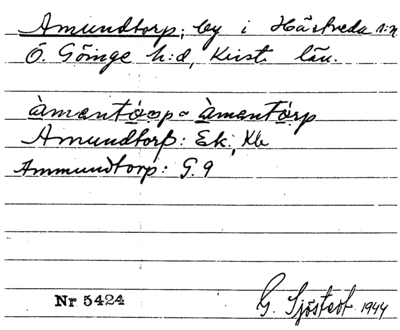 Amundtorp, by i Hästveda s:n
Ö. Göinge h:d, Krist. län.
àmentòrp o àmentórp
Amundtorp: Ek., Kb
Ammundtorp: G. 9
Nr 5424 G. Sjöstedt 1944